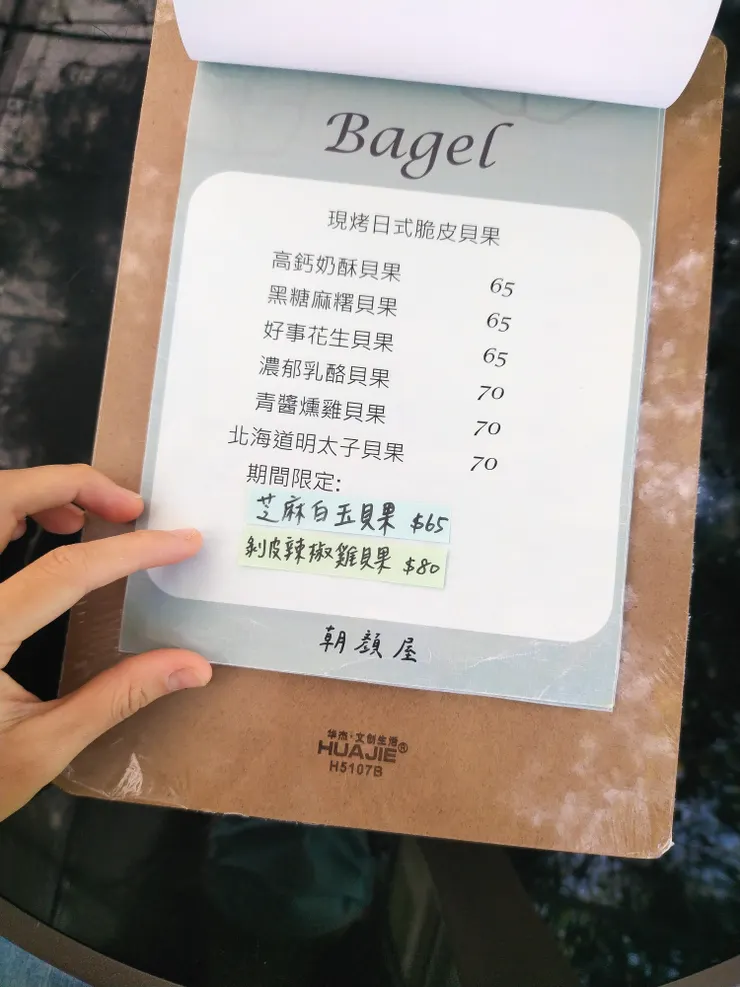 Bagel
現烤日式脆皮貝果
高鈣奶酥貝果 65
黑糖麻糬貝果 65
好事花生貝果 65
濃郁乳酪貝果 70
青醬燻雞貝果 70
北海道明太子貝果 70
期間限定:
芝麻白玉貝果 $65
剝皮辣椒雞貝果 $80
朝顏屋
华杰·文创生活
HUAJIE®
H5107B